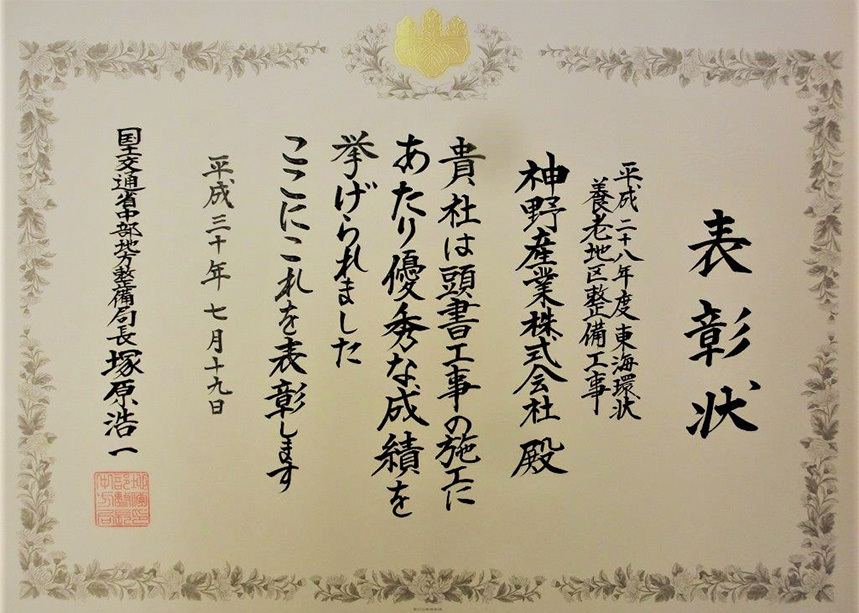 表彰状
平成二十八年度東海環状
養老地区整備工事
神野産業株式会社 殿
貴社は頭書工事の施工に
あたり優秀な成績を
挙げられました
ここにこれを表彰します
平成三十年七月十九日
国土交通省中部地方整備局長 塚原浩一